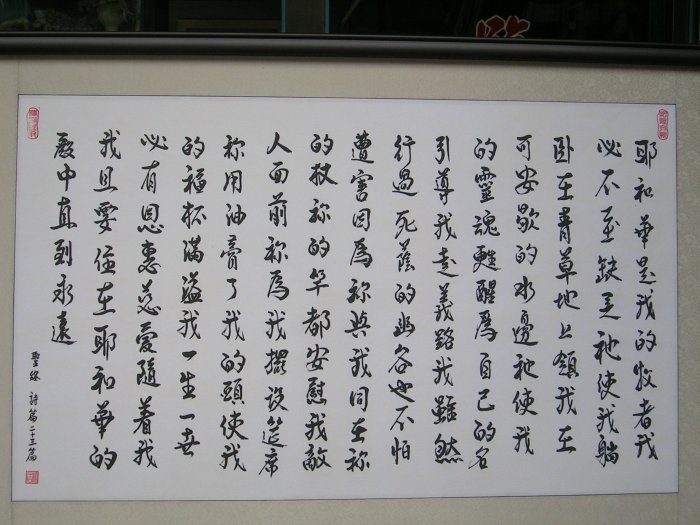 耶和華是我的牧者我
必不至缺乏祂使我躺
臥在青草地上領我在
可安歇的水邊祂使我
的靈魂甦醒為自己的名
引導我走義路我雖然
行過死蔭的幽谷也不怕
遭害因為祢與我同在祢
的杖祢的竿都安慰我敵
人面前祢為我擺設筵席
祢用油膏了我的頭使我
的福杯滿溢我一生一世
必有恩惠慈愛隨着我
我且要住在耶和華的
殿中直到永遠
聖經 詩篇二十三篇